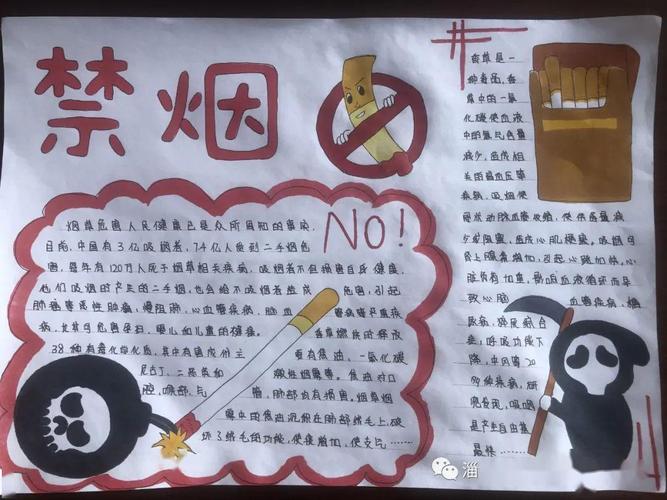 禁烟
NO!
烟草危害人民健康已是众所周知的事实,
目前,中国有3亿吸烟者,7.4亿人受到二手烟危
害,每年有120万人死于烟草相关疾病,吸烟者不但损害自己健康,
他们吸烟时产生的二手烟,也会给不吸烟者造成危害,引起
肺癌等恶性肿瘤,慢阻肺,心血管疾病,脑血管病等严重疾
病,尤其可危害孕妇,婴儿和儿童的健康。香草燃烧时释放
38种有毒化学化质,其中有害成份主要有焦油,一氧化碳
尼古丁,二恶英和刺性烟雾等。焦油对口
腔,喉部,气管,肺部均有损害,烟草烟
雾中的焦油沉积在肺部绒毛上,破
坏了绒毛的功能,使痰增加,使支气……
香草是一
种毒品,香
草中的一氧
化碳使血液
中的氧气含量
减少,造成相
关的高血压等
疾病,吸烟使
冠状动脉血管收缩,使供血量减
少或阻塞,造成心肌梗塞。吸烟可
使肾上腺素增加,引起心跳加快,心
脏负荷加重,影响血液循环而导
致心脑血管疾病,糖
尿病,猝死综合
症,呼吸功能下
降,中风等20
多种疾病,研
究发现,吸烟
是产生自由基
最快……
淄